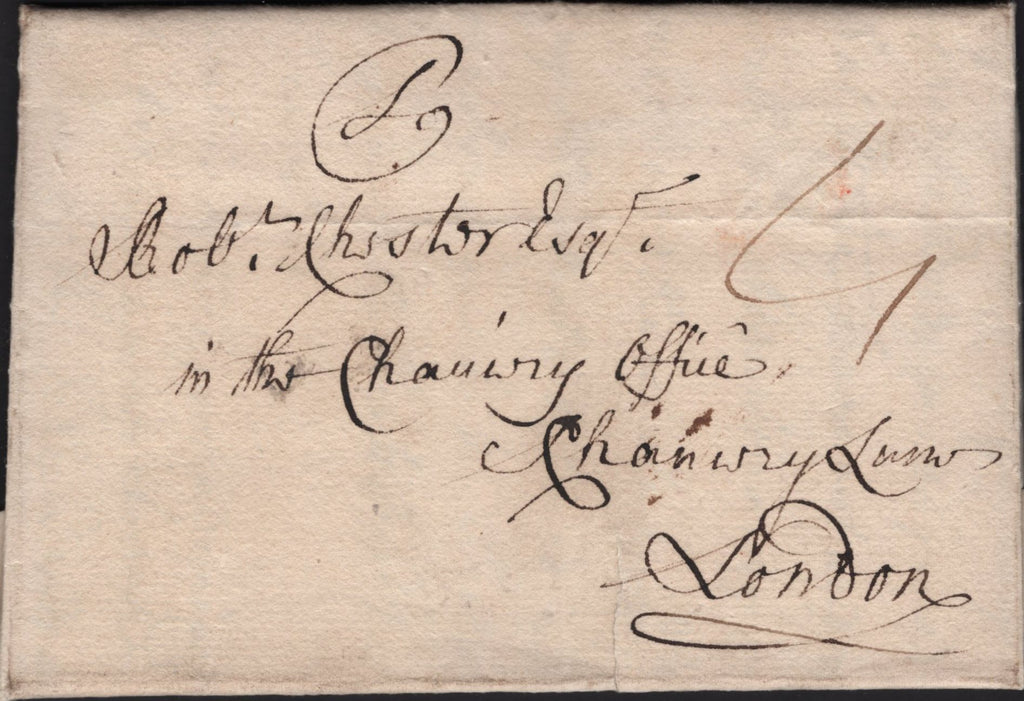 Robt. Chester Esqr.
in the Chancery Office
Chancery Lane
London